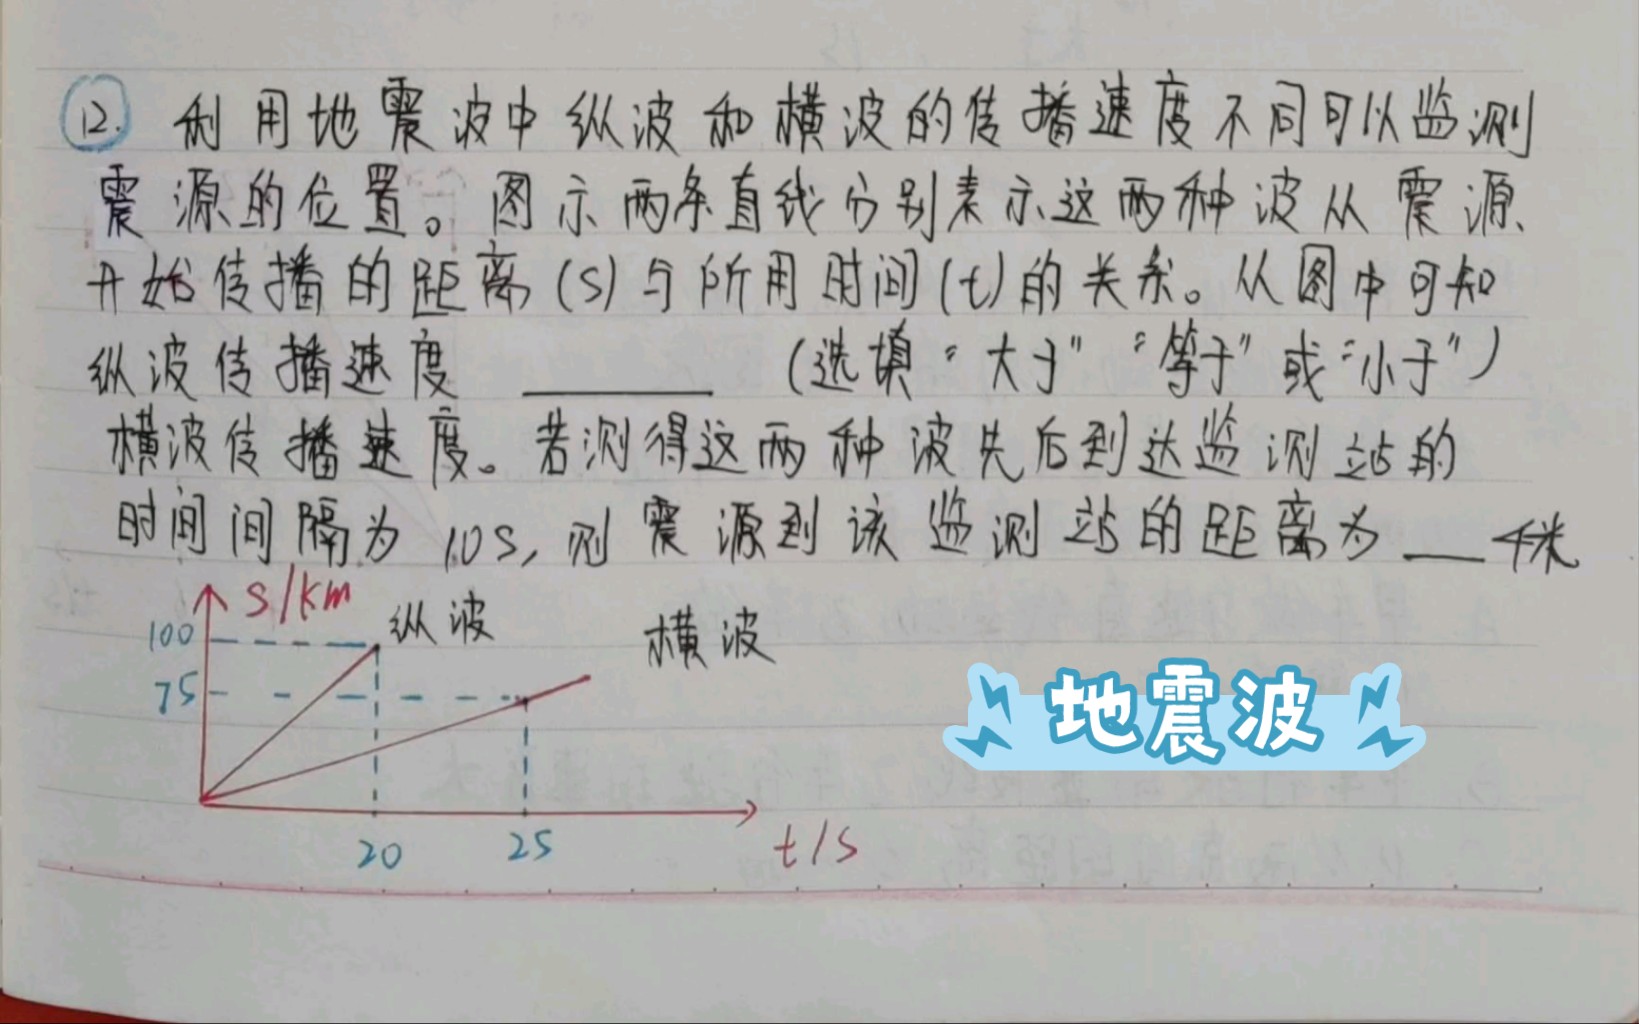 12. 利用地震波中纵波和横波的传播速度不同可以监测
震源的位置。图示两条直线分别表示这两种波从震源
开始传播的距离(s)与所用时间(t)的关系。从图中可知
纵波传播速度 ______ (选填“大于”“等于”或“小于”)
横波传播速度。若测得这两种波先后到达监测站的
时间间隔为10s,则震源到该监测站的距离为__千米
s/km
纵波
横波
100
75
地震波
20
25
t/s